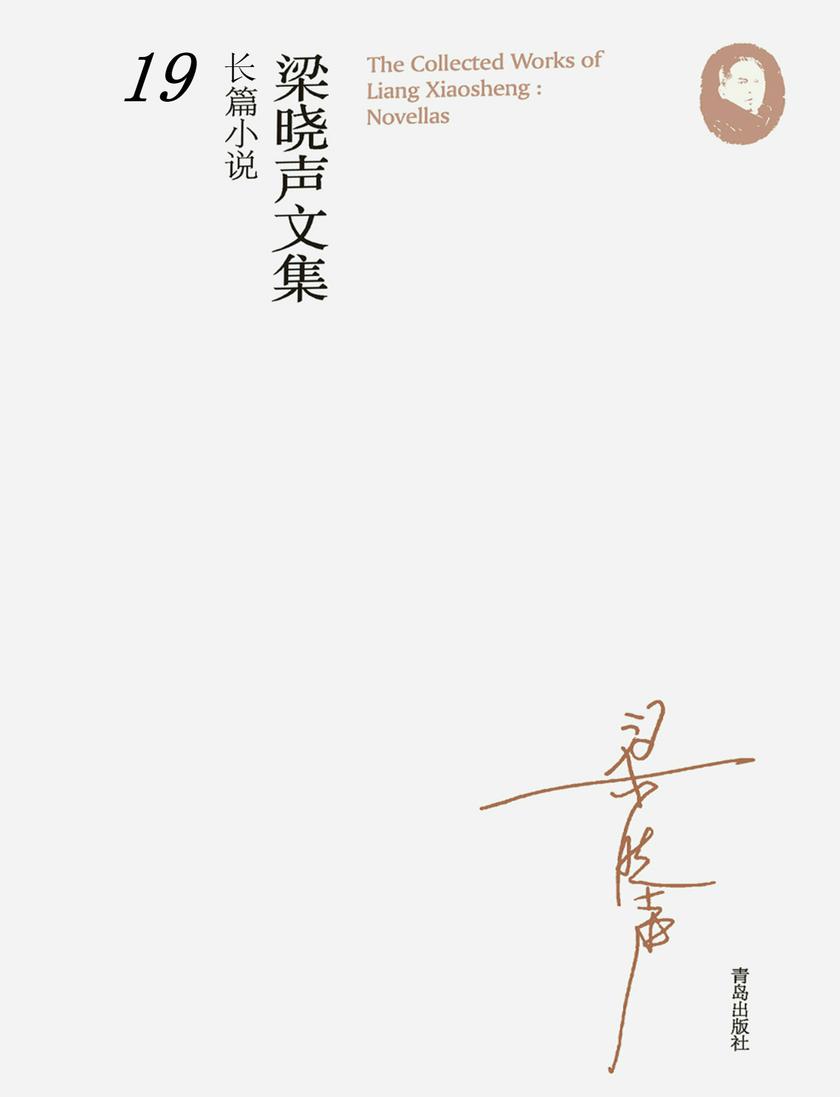 19
长篇小说
梁晓声文集
The Collected Works of
Liang Xiaosheng :
Novellas
梁晓声
青岛出版社